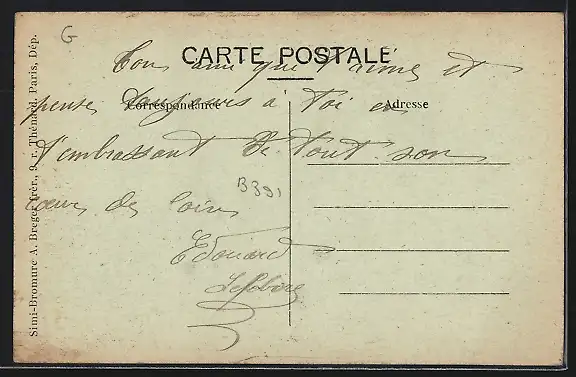 G
CARTE POSTALE
Ton ami que t'aime et
Correspondance
Adresse
pense toujours à Toi en
t'embrassant De Tout son
B391
cœur de loin
Edouard
Lefebvre
Simi-Bromure A. Breger frèr., 9, r. Thénard, Paris, Dép.